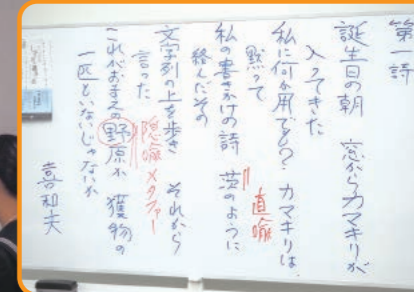 第一詩
誕生日の朝　窓からカマキリが
入ってきた
私に何か用でも？　カマキリは、
黙って
私の書きかけの詩　茨のように
直喩
絡んだその
文字列の上を歩き　それから
言った
隠喩メタファー
これがおまえの野原か　獲物の
一匹といないじゃないか
喜和夫